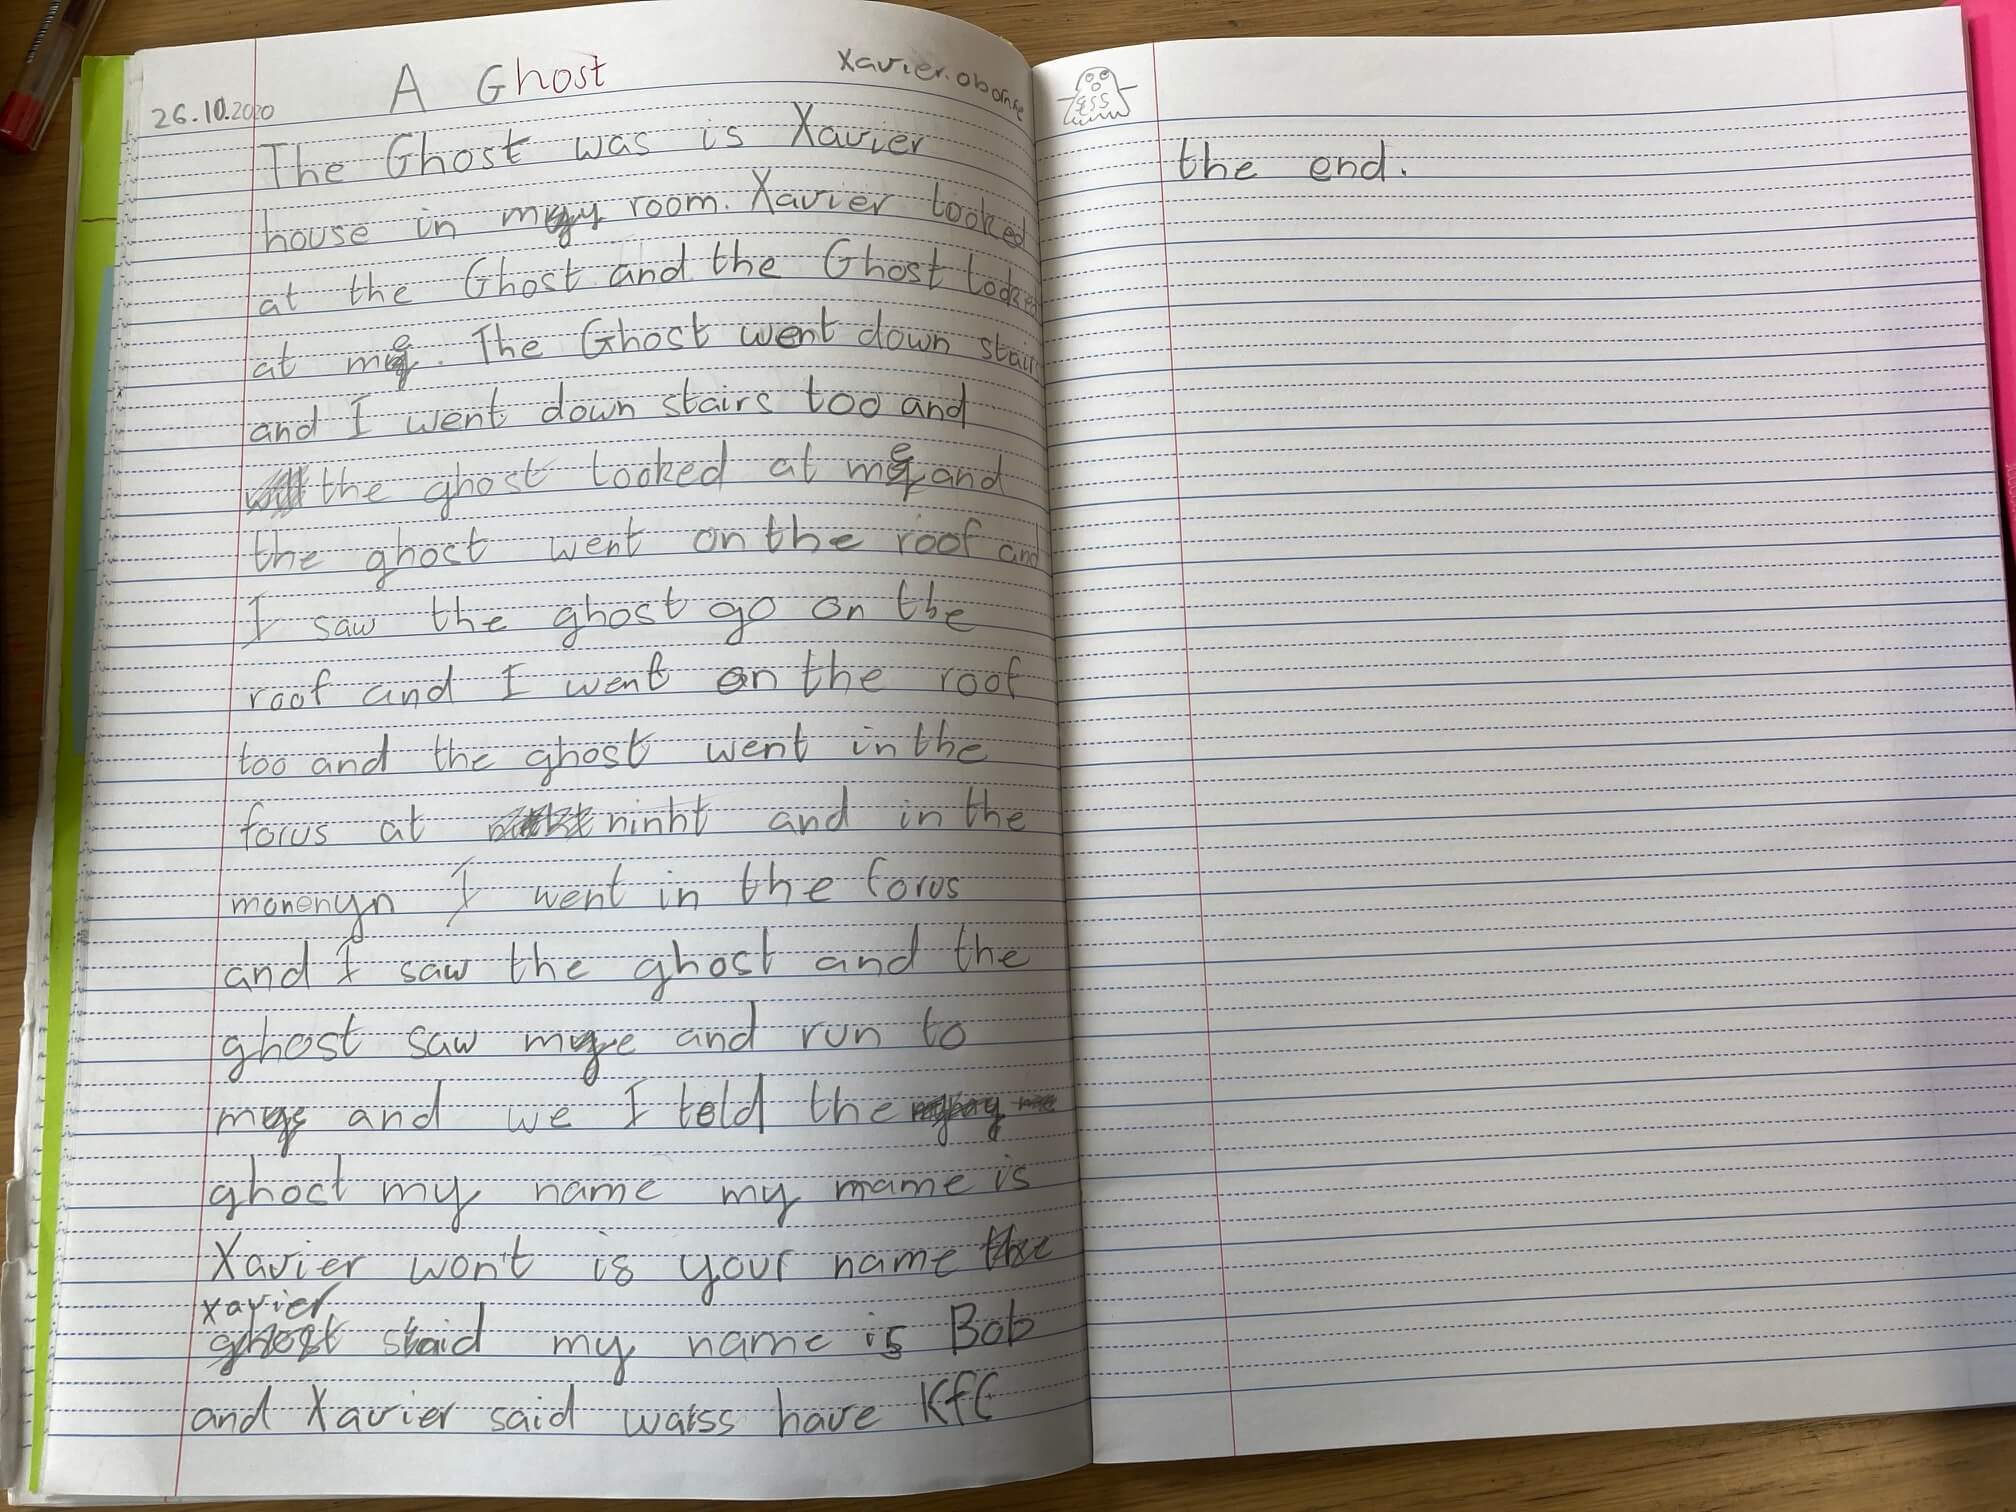 26.10.2020 A Ghost Xavier.
The Ghost was is Xavier
house in my room. Xavier looked
at the Ghost and the Ghost looked
at me. The Ghost went down stair
and I went down stairs too and
the ghost looked at me and
the ghost went on the roof and
I saw the ghost go on the
roof and I went on the roof
too and the ghost went in the
forus at ninht and in the
monenyn I went in the forus
and I saw the ghost and the
ghost saw me and run to
and we I told the
ghost my name my mame is
Xavier won't is your name
Xavier
said my name is Bob
and Xavier said watss have KfC
the end.